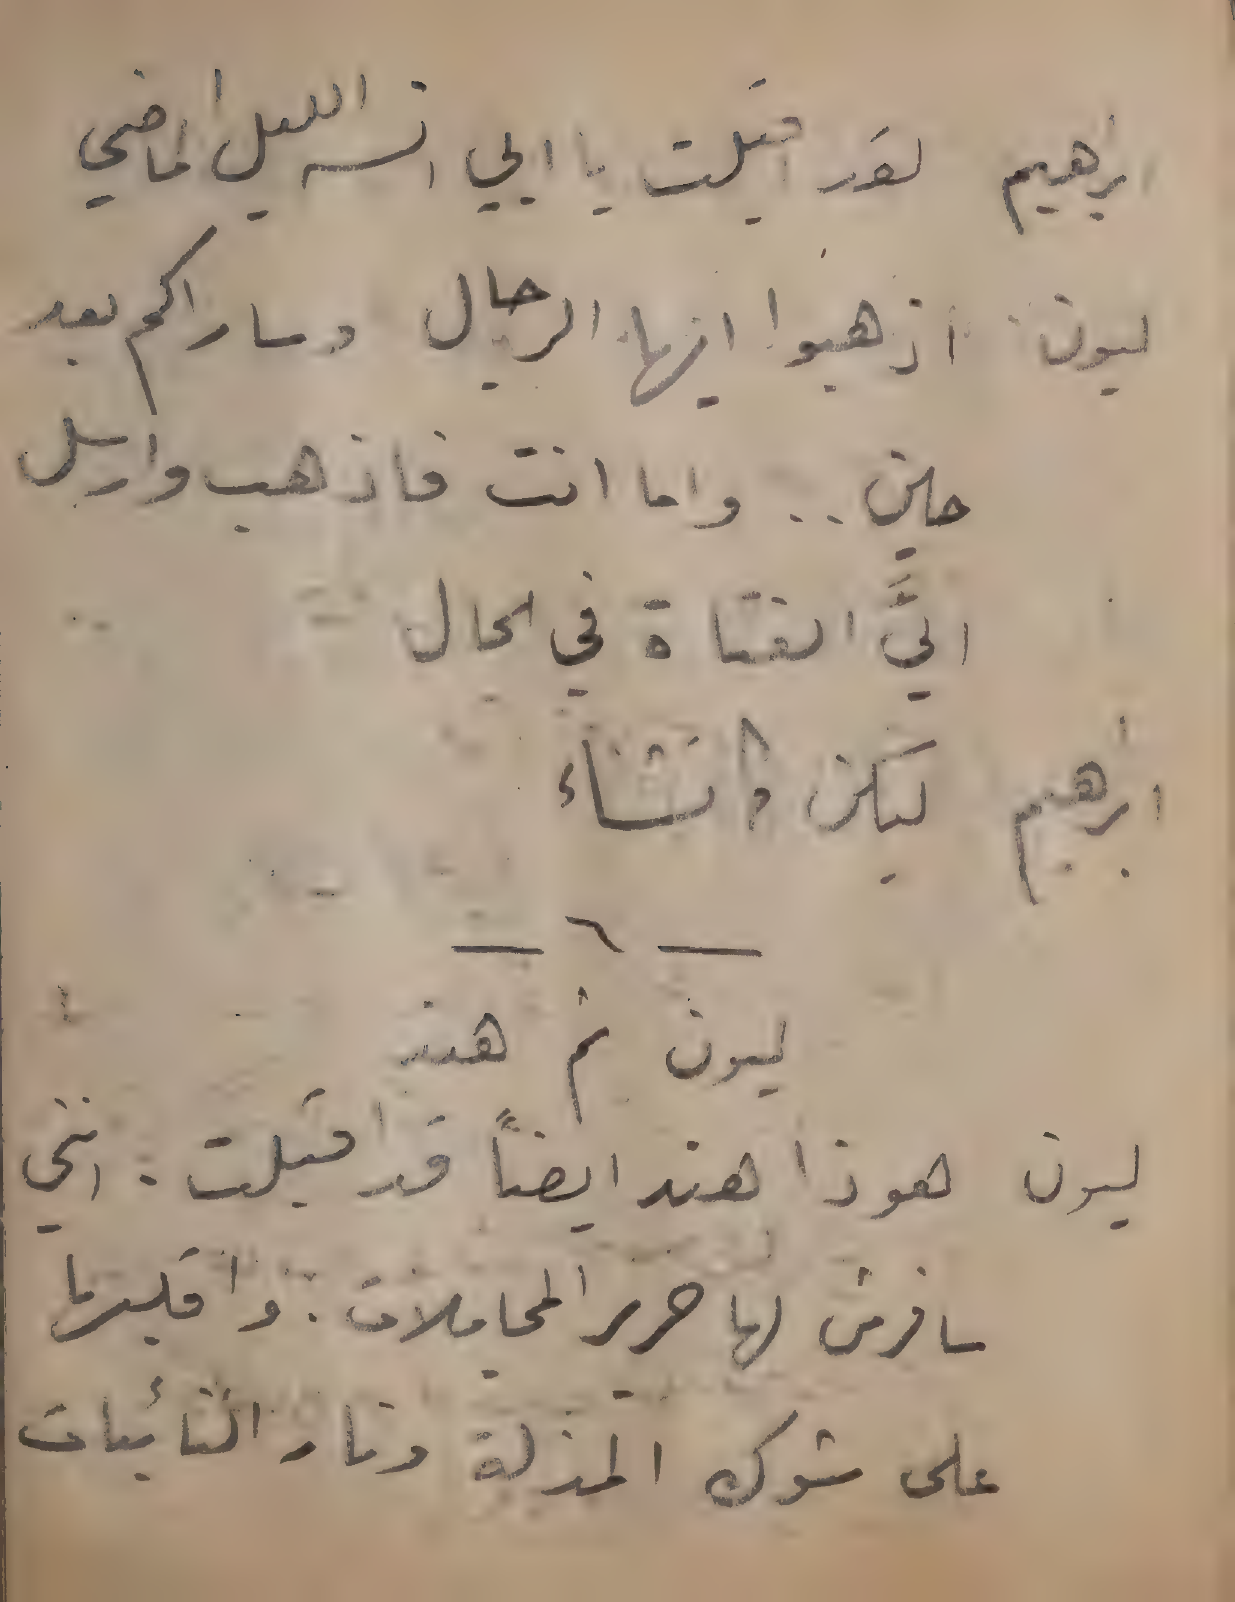 ابرهيم لقد اقبلت يا ابي انسه الليل الماضي
ليون : اذهبوا ايها الرجال وساراكم بعد
حين .. واما انت فاذهب وارسل
اليَّ الفتاة في الحال
ابرهيم ليكن ما تشاء
— ٦ —
ليون ثم هند
ليون هوذا هند ايضاً قد اقبلت . انني
سافرش لها حرير المجاملات . واقلبها
على شوك المذلة ونار النائبات